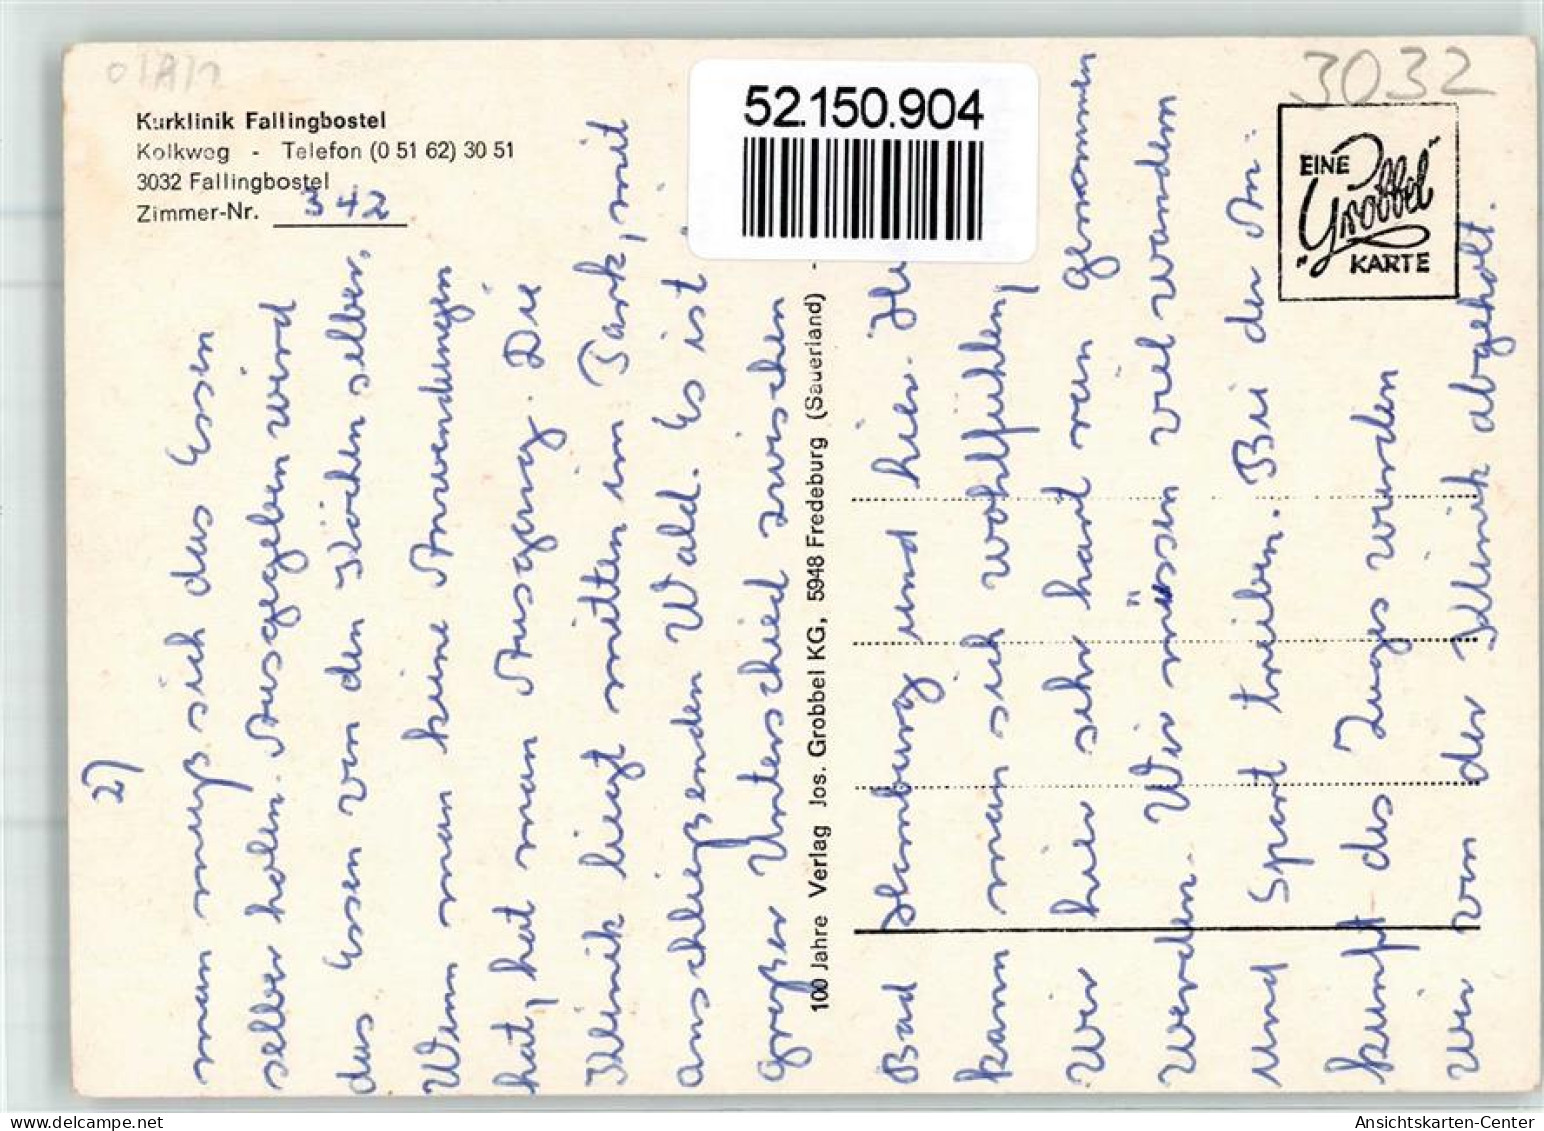 01A12
3032
52.150.904
Kurklinik Fallingbostel
Kolkweg - Telefon (0 51 62) 30 51
3032 Fallingbostel
Zimmer-Nr. 342
EINE
"Grobbel"
KARTE
100 Jahre Verlag Jos. Grobbel KG, 5948 Fredeburg (Sauerland) -
2)
man muß sich das Essen
selber holen. Ausgegeben wird
das Essen von den Köchen selber.
Wenn man keine Anwendungen
hat, hat man Ausgang. Die
Klinik liegt mitten im Park, mit
anschließenden Wald. Es ist
großer Unterschied zwischen
Bad Hamburg und hier. Hi
kann man sich wohlfühlen,
Wir hier sehr hart ran genommen
werden. Wir müssen viel wandern
und Sport treiben. Bei der An-
kunft des Zuges wurden
wir von der Klinik abgeholt.
Ansichtskarten-Center